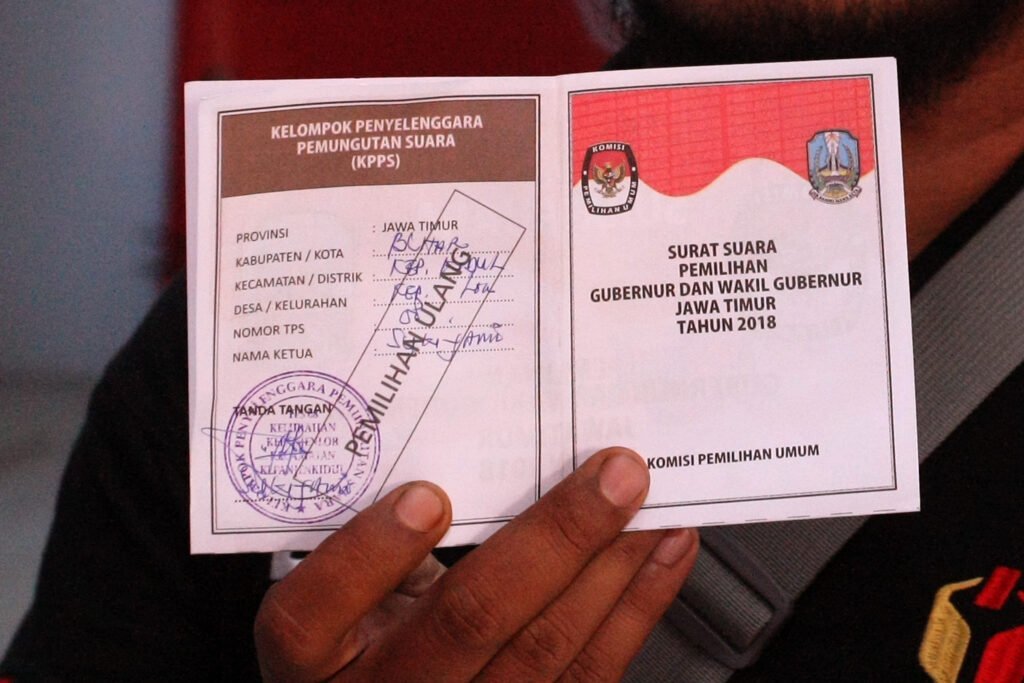 KELOMPOK PENYELENGGARA
PEMUNGUTAN SUARA
(KPPS)
PROVINSI : JAWA TIMUR
KABUPATEN / KOTA : BLITAR
KECAMATAN / DISTRIK : KEP. KIDUL
DESA / KELURAHAN : KEP. LOR
NOMOR TPS :
NAMA KETUA :
PEMILIHAN ULANG
TANDA TANGAN
KELOMPOK PENYELENGGARA PEMUNGUTAN SUARA
KELURAHAN
KEPANJENLOR
KECAMATAN
KEPANJENKIDUL
KOMISI
PEMILIHAN UMUM
SURAT SUARA
PEMILIHAN
GUBERNUR DAN WAKIL GUBERNUR
JAWA TIMUR
TAHUN 2018
KOMISI PEMILIHAN UMUM